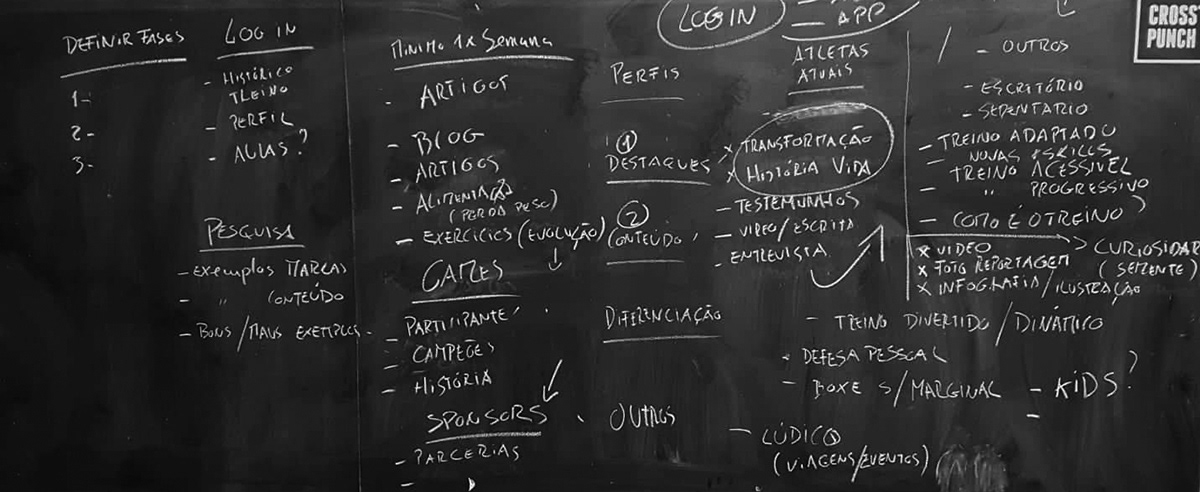 DEFINIR FASES
1-
2-
3-
LOGIN
- HISTÓRICO
TREINO
- PERFIL
- AULAS?
PESQUISA
- EXEMPLOS MARCAS
- " CONTEÚDO
- BONS/MAUS EXEMPLOS
MINIMO 1X SEMANA
- ARTIGOS
- BLOG
- ARTIGOS
- ALIMENTAÇÃO
(PERDA PESO)
- EXERCÍCIOS (EVOLUÇÃO)
GAMES
- PARTICIPANTES
- CAMPEÕES
- HISTÓRIA
SPONSORS
- PARCERIAS
-
PERFIS
1
DESTAQUES
2
CONTEÚDO
DIFERENCIAÇÃO
OUTROS
LOGIN
- APP
ATLETAS
ATUAIS
X TRANSFORMAÇÃO
X HISTÓRIA VIDA
- TESTEMUNHOS
- VIDEO/ESCRITA
- ENTREVISTA
- OUTROS
- ESCRITÓRIO
- SEDENTARIO
- TREINO ADAPTADO
- NOVAS SKILLS
- TREINO ACESSIVEL
- " PROGRESSIVO
- COMO É O TREINO?
X VIDEO
X FOTO REPORTAGEM
X INFOGRAFIA/ILUSTRAÇÃO
> CURIOSIDAD
(SEMENTE)
- TREINO DIVERTIDO/DINÂMICO
- DEFESA PESSOAL
- BOXE S/MARGINAL
- KIDS?
-
- LÚDICO
(VIAGENS/EVENTOS)
CROSS
PUNCH